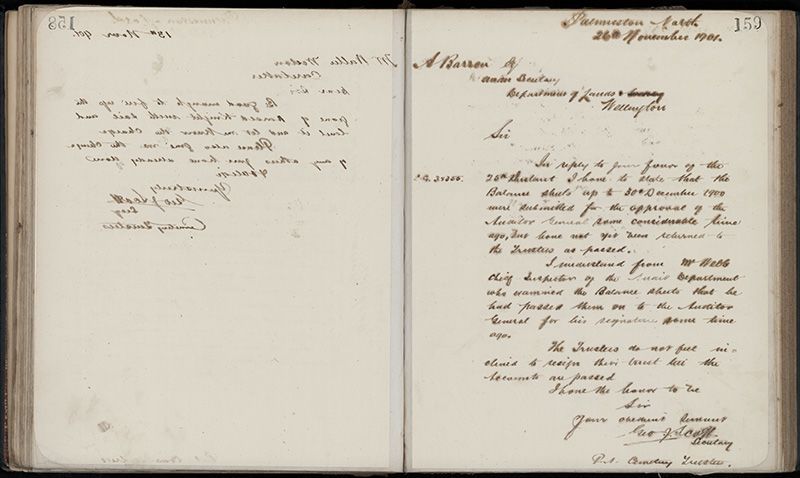 158
13th Novr 901.
Caretaker
Dear Sir
Be good enough to fix up the
grave of Knight and
and let me know the charge
Please also give me the charge
of any others you have already done
Yours truly
Geo J Scott
Secy
Cemetery Trustees
159
Palmerston North
26th November 1901.
A Barron Esq
Under Secretary
Department of Lands &
Wellington
Sir
In reply to your favor of the
25th Instant I have to state that the
Balance sheets up to 30th December 1900
were submitted for the approval of the
Auditor General some considerable time
ago, but have not yet been returned to
the Trustees as passed.
I understand from Mr Webb
Chief Inspector of the Audit Department
who examined the Balance sheets that he
had passed them on to the Auditor
General for his signature some time
ago.
The Trustees do not feel in-
clined to resign their trust till the
Accounts are passed
I have the honor to be
Sir
Your obedient servant
Geo J. Scott
Secretary
P.N. Cemetery Trustees.